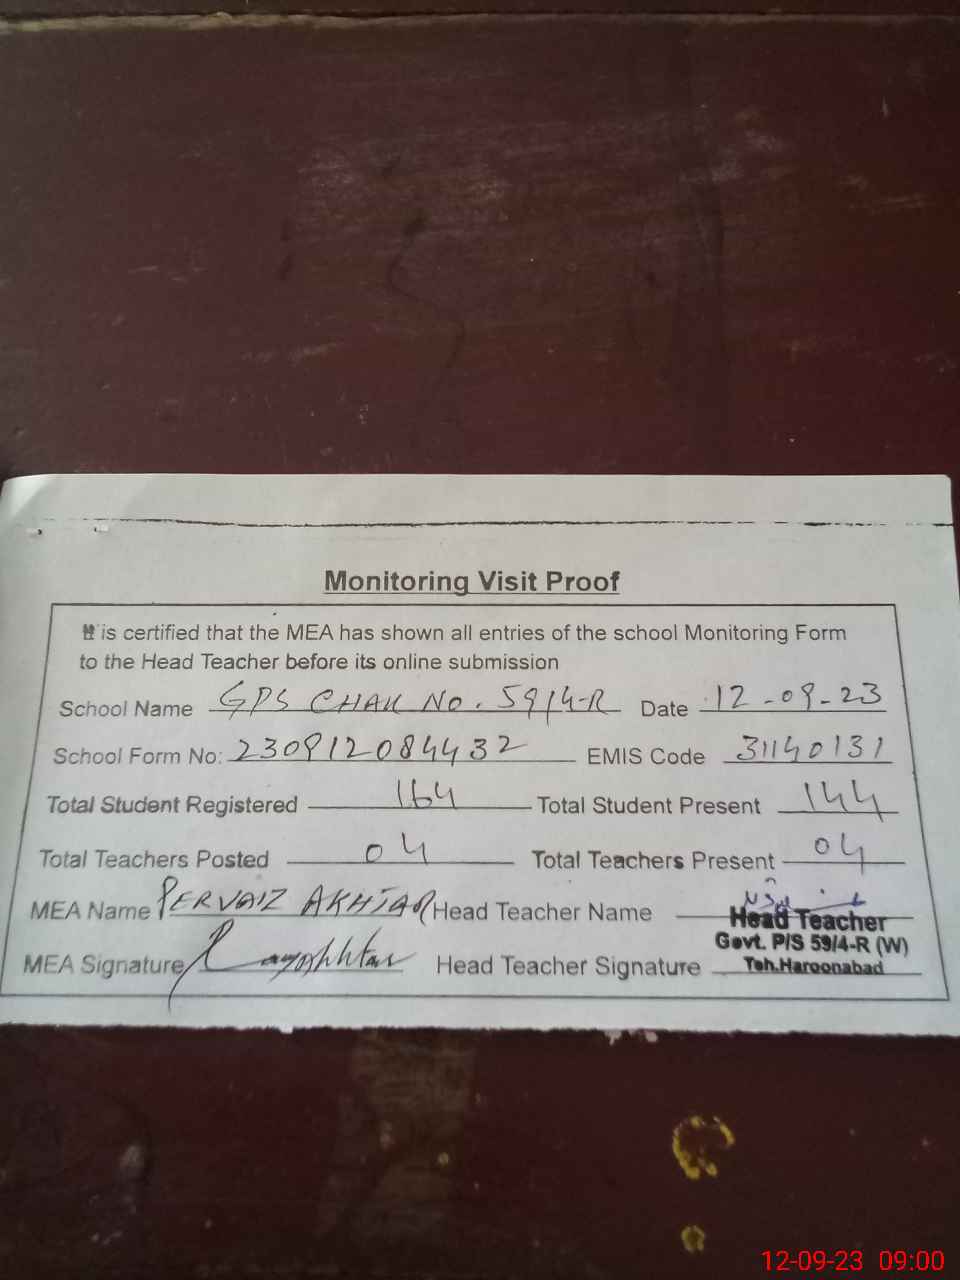 Monitoring Visit Proof
It is certified that the MEA has shown all entries of the school Monitoring Form
to the Head Teacher before its online submission
School Name GPS CHAK NO. 59/4-R Date 12-09-23
School Form No: 230912084432 EMIS Code 31140131
Total Student Registered 164 Total Student Present 144
Total Teachers Posted 04 Total Teachers Present 04
MEA Name PERVAIZ AKHTAR Head Teacher Name
Head Teacher
Govt. P/S 59/4-R (W)
MEA Signature Head Teacher Signature Teh.Haroonabad
12-09-23 09:00